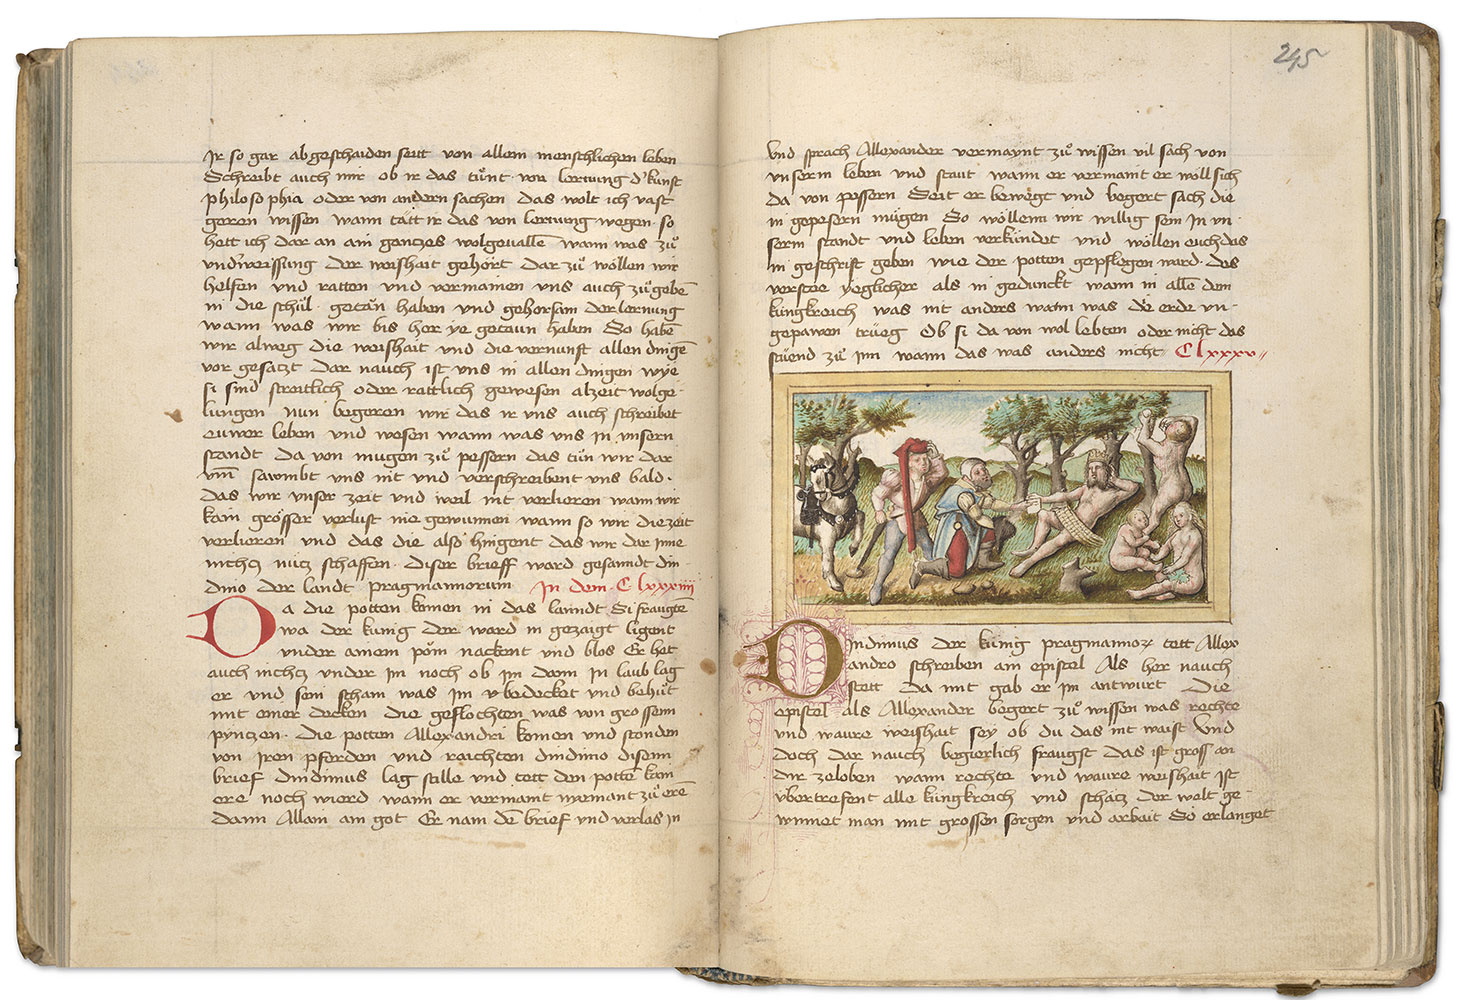 Ir so gar abgeschaiden seitt von allem menschlichen leben
Schreibt auch mir ob ir das tůnt von lernung d' kunst
philosophia oder von andern sachen das wolt ich vast
geren wissen wann tätt ir das von lernung wegen so
hett ich dar an ain gantzes wolgeuallen wann was zů
vnd'weissung der weishait gehört dar zů wöllen wir
helfen und ratten und vermainen uns auch zůgebē
in die schůl getān haben und gehorsam der lernung
wann was wir bis her ye getaun haben So habē
wir alweg die weishait und die vernunft allen dingē
vor gesatzt dar nauch ist uns in allen dingen wye
si sind streitlich oder rattlich gewesen alzeit wolge-
lungen nun begeren wir das ir uns auch schreibet
euwer leben und wesen wann was uns in unsern
standt da von mugen zů pessern das tůn wir dar
vm̄ sawmbt uns nit und verschreibent uns bald
das wir unser zeit und weil nit verlieren wann wir
kain grösser verlust nie gewunnen wann so wir die zeit
verlieren und das die also hingent das wir dar inne
nichtz nutz schaffen. diser brieff ward gesanndt din-
dimo der landt pragmamorum In dem C lxxxiiij
Da die potten komen in das lanndt Si fraugtē
wa der kunig der ward in gezaigt ligent
under ainem pöm nackent und blos Er het
auch nichtz under im noch ob im dann in laub lag
er und sein scham was im v̈bedecket und behůt
mit einer decken die geflochten was von grossenn
pyntzen. die potten Allexandri komen und stonden
von iren pferden und raichten dindimo disenn
brief dindimus lag stille und tett den pottē kain
ere noch wierd wann er vermaint nyemant zů erē
dann Allain ain got Er nam dē brief und verlas in
245
Vnd sprach Allexander vermaynt zů wissen vil sach von
unserm leben und staut wann er vermant er wöll sich
da von pessern Seit er bewegt und begert sach die
in gepesern mügen So wöllenn wir willig sein in un-
serm standt und leben verkündet und wöllen euch das
in geschrift geben wie der potten gepflegen ward. das
verstee yeglicher als in gedunckt wann in allē dem
küngkreich was nit anders wann was dē erde un-
gepawen trüeg Ob si da von wol lebten oder nicht das
stüend zů im wann das was anders nicht C lxxxv
Dindimus der künig pragmamor tett Allex
andro schreiben ain epistel Als her nauch
stett Da mit gab er im antwurt Die
epistel als Allexander begert zů wissen was rechte
und waure weishait sey ob du das nit waist Vnd
doch dar nauch begierlich fraugst das ist gross an
dir zeloben wann rechte und waure weishait ist
vbertrefent alle küngkreich und schätz der welt ge-
winnet man mit grossen sorgen und arbait So erlanget